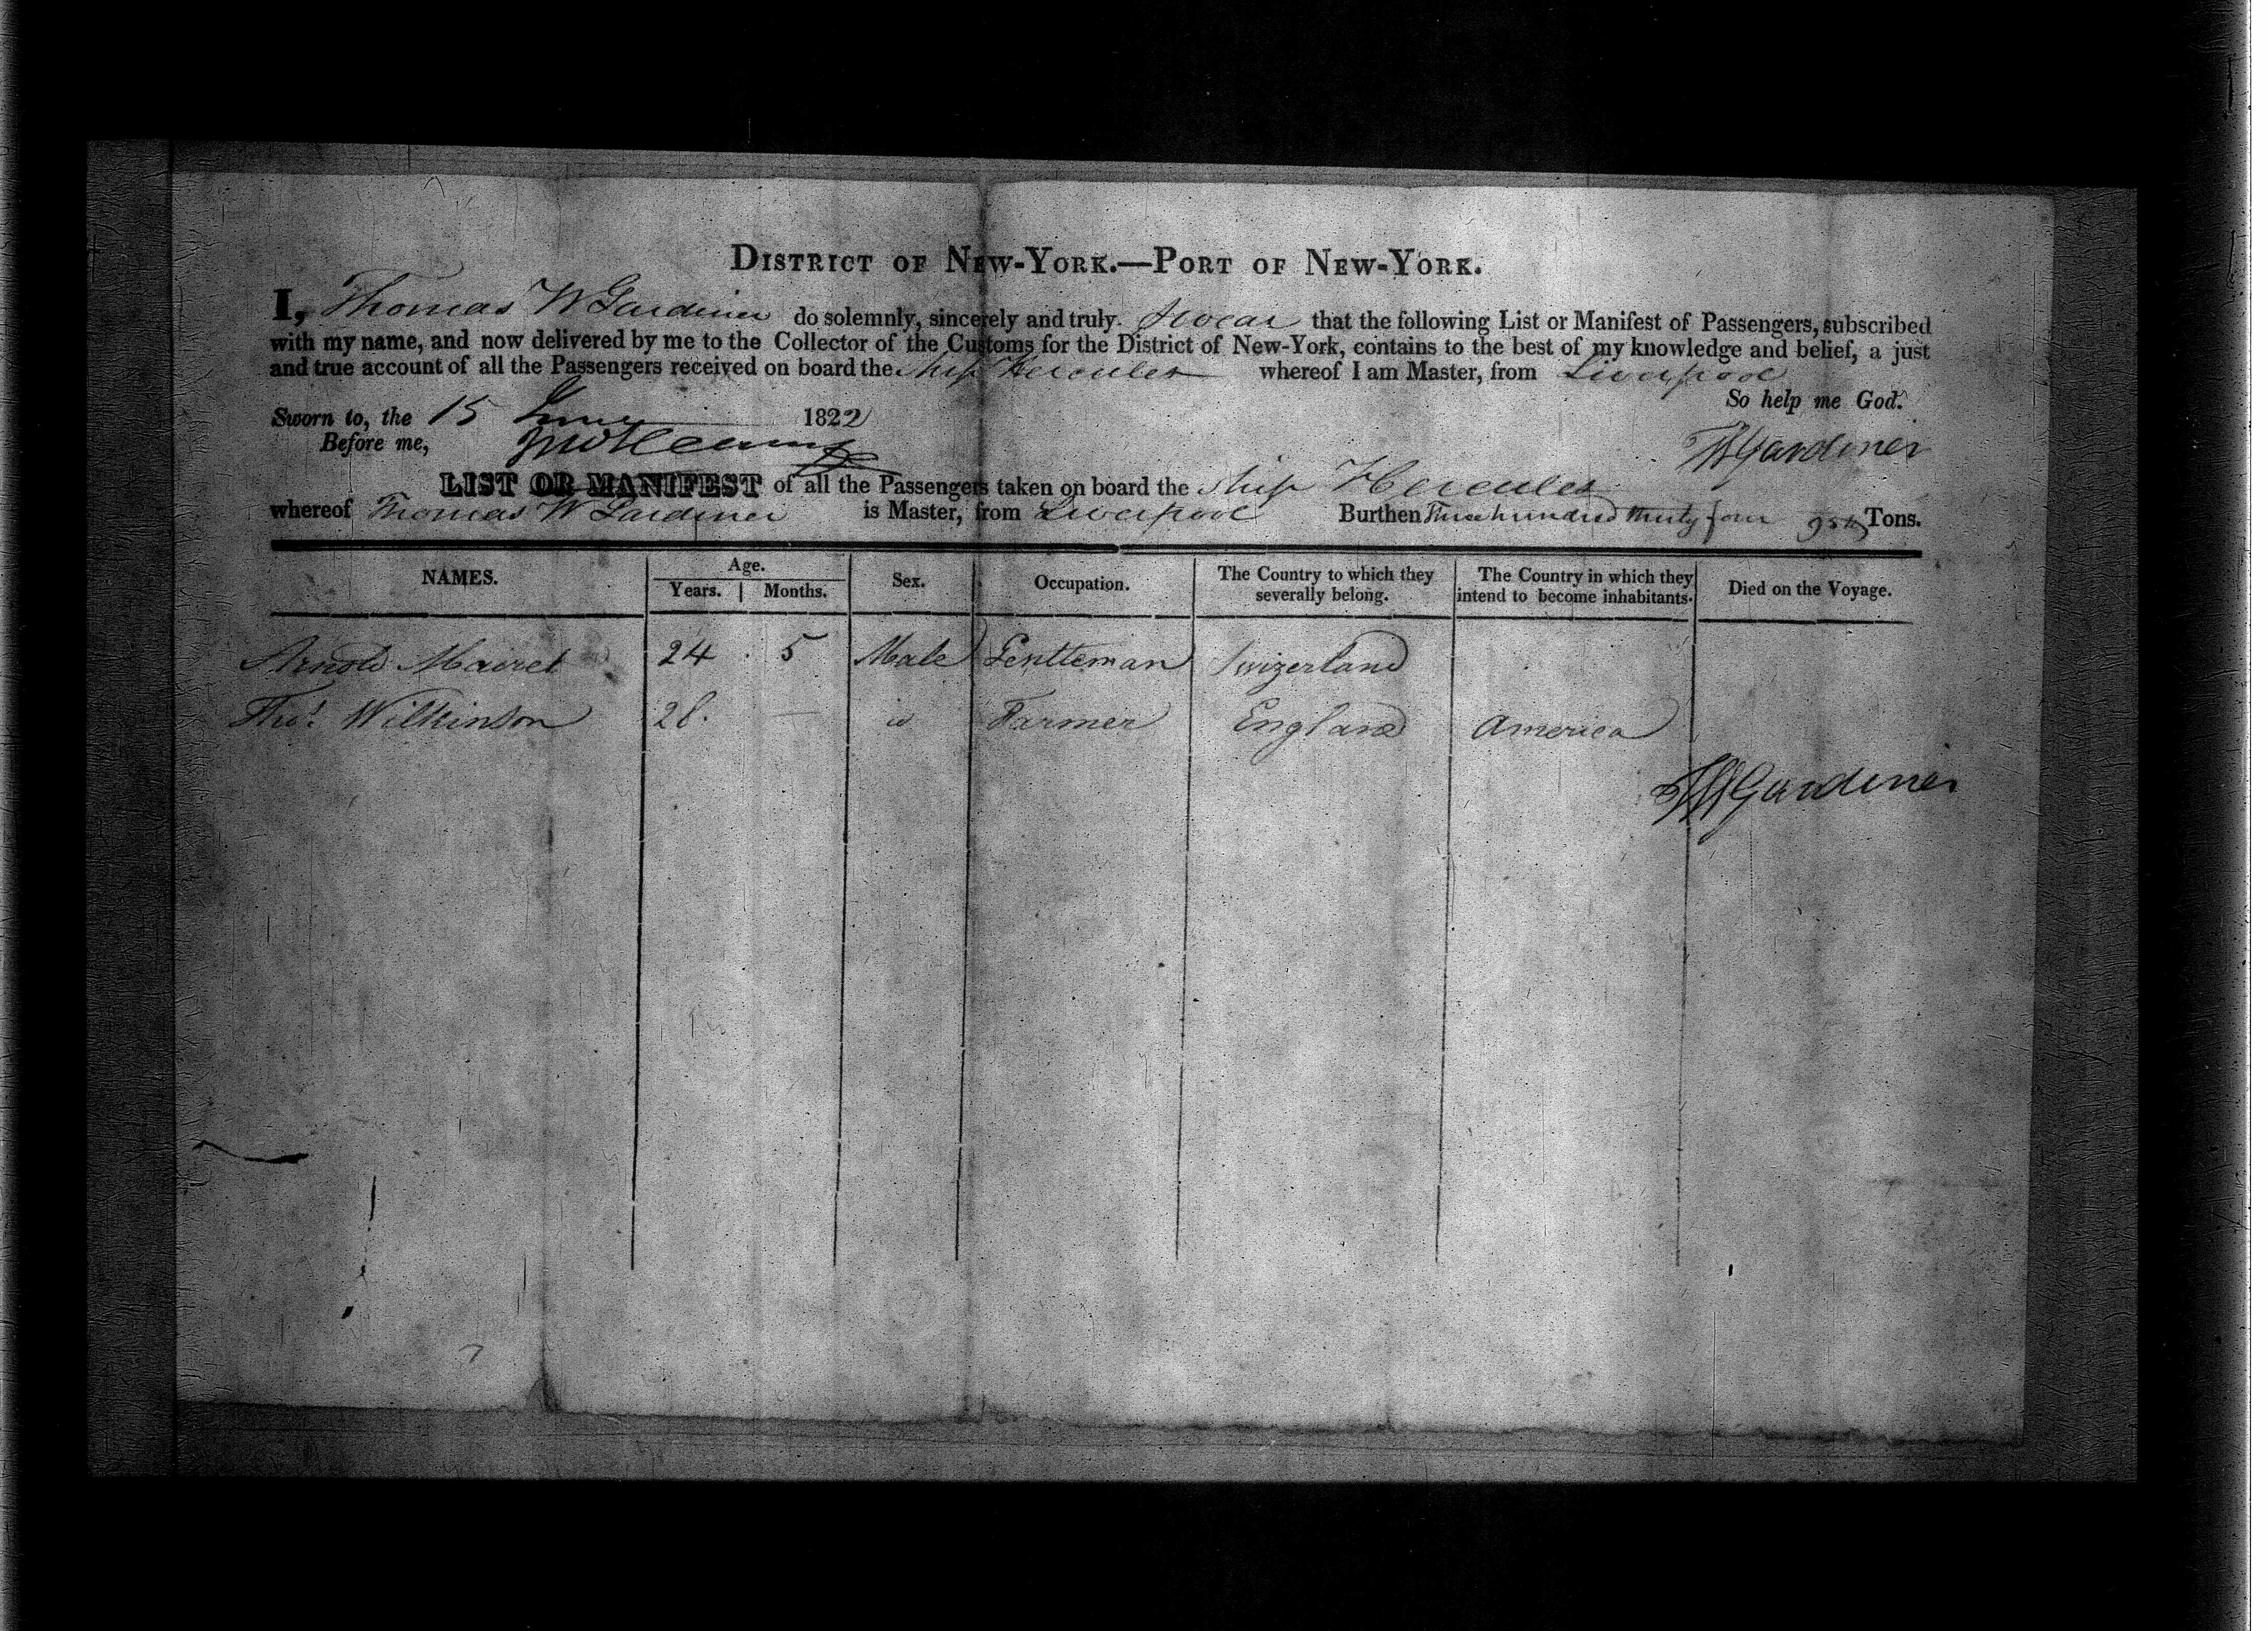 DISTRICT OF NEW-YORK.—PORT OF NEW-YORK.
I, Thomas W Gardiner do solemnly, sincerely and truly swear that the following List or Manifest of Passengers, subscribed
with my name, and now delivered by me to the Collector of the Customs for the District of New-York, contains to the best of my knowledge and belief, a just
and true account of all the Passengers received on board the Ship Hercules whereof I am Master, from Liverpool
So help me God.
Sworn to, the 15 June 1822
Before me,
TW Gardiner
LIST OR MANIFEST of all the Passengers taken on board the Ship Hercules
whereof Thomas W Gardiner is Master, from Liverpool Burthen Three hundred thirty four Tons.
NAMES. Age. Years. Months. Sex. Occupation. The Country to which they severally belong. The Country in which they intend to become inhabitants. Died on the Voyage.
Arnold Mairet 24 5 Male Gentleman Swizerland
Thos. Wilkinson 28. — do Farmer England America
TW Gardiner